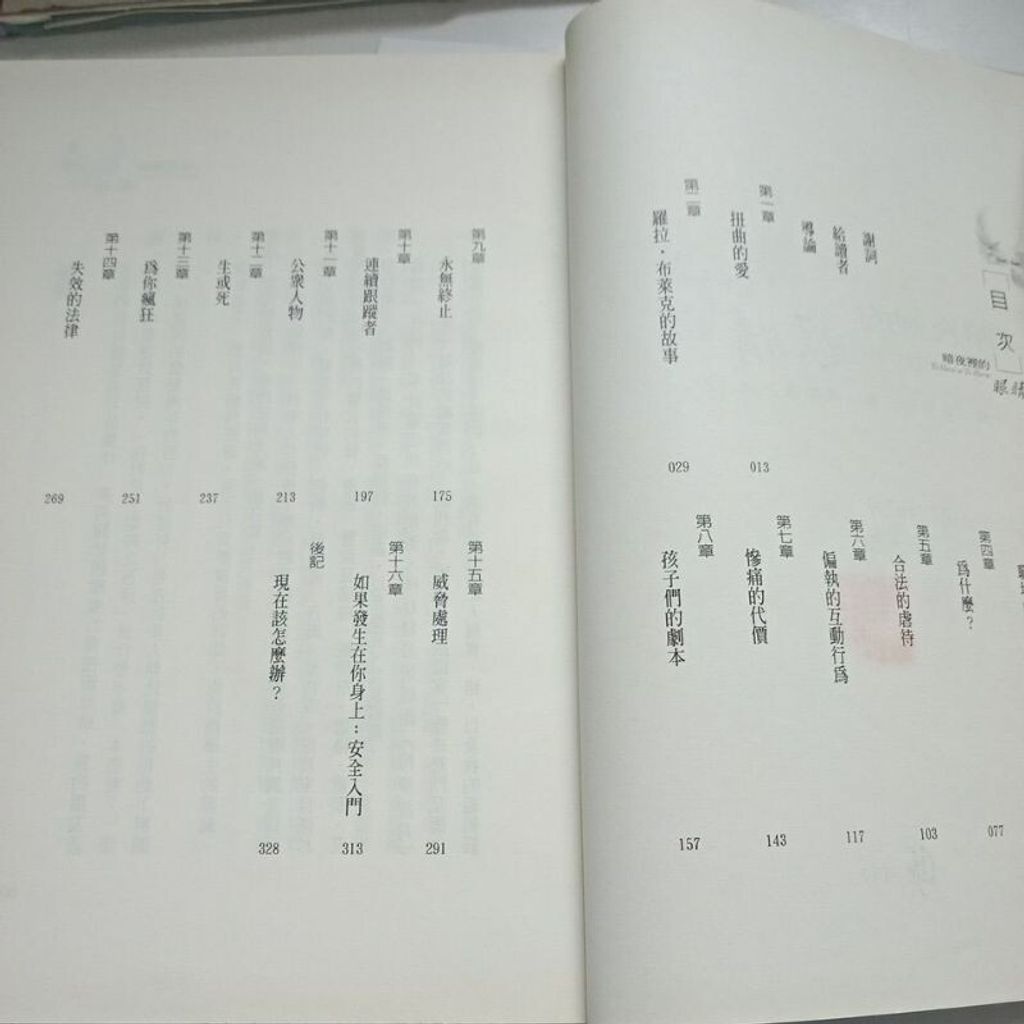 目次
暗夜裡的
眼睛
謝詞
給讀者
導論
第一章
扭曲的愛
013
第二章
羅拉·布萊克的故事
029
第四章
為什麼？
077
第五章
合法的虐待
103
第六章
偏執的互動行為
117
第七章
慘痛的代價
143
第八章
孩子們的劇本
157
第九章
永無終止
175
第十章
連續跟蹤者
197
第十一章
公眾人物
213
第十二章
生或死
237
第十三章
為你瘋狂
251
第十四章
失效的法律
269
第十五章
威脅處理
291
第十六章
如果發生在你身上：安全入門
313
後記
現在該怎麼辦？
328